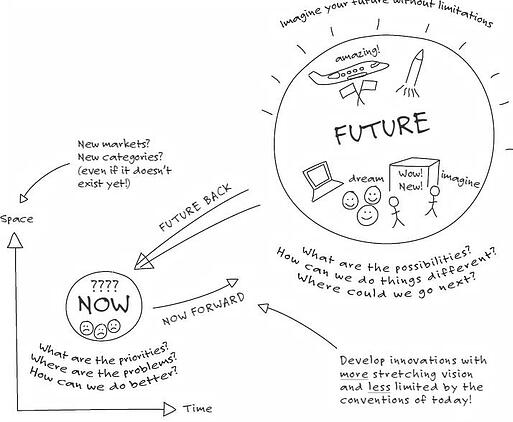 Imagine your future without limitations
amazing!
FUTURE
dream
Wow!
New!
imagine
What are the possibilities?
How can we do things different?
Where could we go next?
New markets?
New categories?
(even if it doesn't
exist yet!)
Space
FUTURE BACK
????
NOW
NOW FORWARD
What are the priorities?
Where are the problems?
How can we do better?
Develop innovations with
more stretching vision
and less limited by the
conventions of today!
Time